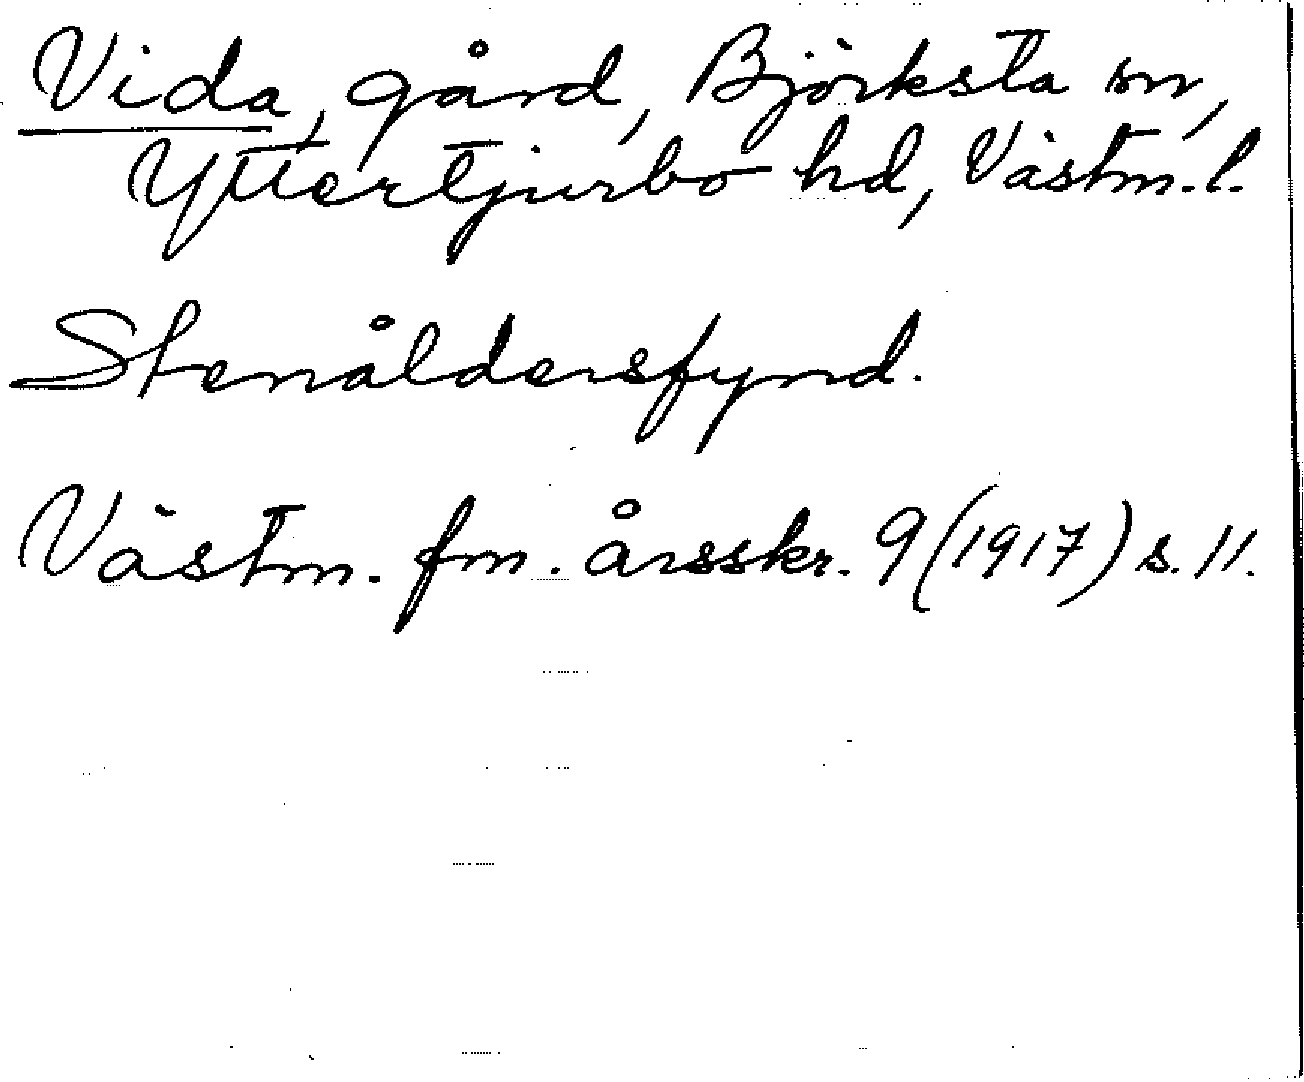 Vida, gård, Björksta sn,
Yttertjurbo hd, Västm. l.
Stenåldersfynd.
Västm. fm. årsskr. 9 (1917) s. 11.